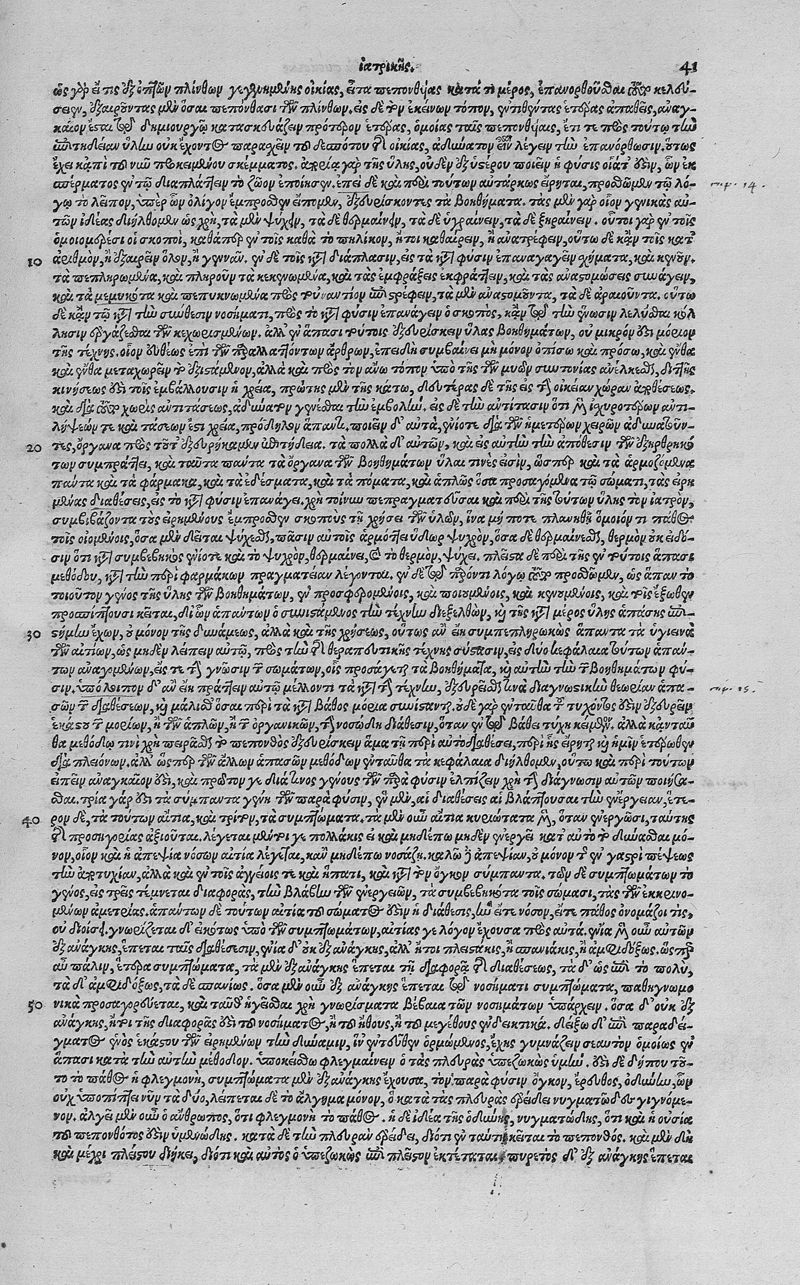 ἰατρικῆς. 41
ὡς γὰρ εἴ τις ἐξ ὀπτῶν πλίνθων γεγενημένης οἰκίας, εἶτα πεπονθυίας κατά τι μέρος, ἐπανορθοῦσθαι
σειεν, ἐξαιροῦντας μὲν ὅσαι πεπόνθασι τῶν πλίνθων, εἰς δὲ τὸν ἐκείνων τόπον, ἐντιθέντας ἑτέρας ἀπαθεῖς, ἀναγ-
καῖον ἔσται τῷ δημιουργῷ κατασκευάζειν πρότερον ἑτέρας, ὁμοίας ταῖς πεπονθυίαις, ἔτι τε πρὸς τούτῳ τὴν
ἐπιτηδείαν ὕλην οὐκ ἔχοντος παρασχεῖν τοῦ δεσπότου τῆς οἰκίας, ἀδύνατον εἶναι λέγειν τὴν ἐπανόρθωσιν, οὕτως
ἔχει κἀπὶ τοῦ νῦν προκειμένου σκέμματος. ἀπορίᾳ γὰρ τῆς ὕλης, οὐδὲν ἐξ ὑστέρου ποιεῖν ἡ φύσις οἵα τ' ἐστὶν, ὧν ἐκ
σπέρματος ἐν τῷ διαπλάττειν τὸ ζῶον ἐποίησεν. ἐπεὶ δὲ καὶ περὶ τούτων αὐτάρκως εἴρηται, προσθῶμεν τῷ λό-
γῳ τὸ λεῖπον, ὑπὲρ ὧν ὀλίγον ἔμπροσθεν εἴπομεν, ἐξευρίσκοντες τὰ βοηθήματα. τὰς μὲν γὰρ οἷον γενικὰς αὐ-
τῶν ἰδέας διήλθομεν ὡς χρὴ, τὰ μὲν ψύχειν, τὰ δὲ θερμαίνειν, τὰ δὲ ὑγραίνειν, τὰ δὲ ξηραίνειν. οὗτοι γὰρ ἐν τοῖς
ὁμοιομερέσι οἱ σκοποὶ, καθάπερ ἐν τοῖς κατὰ τὸ πηλίκον, ἤτοι καθαίρειν, ἢ ἀνατρέφειν, οὕτω δὲ κἀν τοῖς κατ'
10 ἀριθμὸν, ἢ ἐξαιρεῖν ὅλον, ἢ γεννᾶν. ἐν δὲ τοῖς κατὰ διάπλασιν, εἰς τὰ κατὰ φύσιν ἐπαναγαγεῖν σχήματα, καὶ κενοῦν
τὰ πεπληρωμένα, καὶ πληροῦν τὰ κεκενωμένα, καὶ τὰς ἐμφράξεις ἐκφράττειν, καὶ τὰς ἀναστομώσεις συνάγειν,
καὶ τὰ μεμυκότα καὶ πεπυκνωμένα πρὸς τοὐναντίον ἐπιστρέφειν, τὰ μὲν ἀναστομοῦντα, τὰ δὲ ἀραιοῦντα. οὕτω
δὲ κἀν τῷ κατὰ τὴν σύνθεσιν νοσήματι, πρὸς τὸ κατὰ φύσιν ἐπανάγειν ὁ σκοπὸς, κἀν τῷ τὴν ἕνωσιν λελύσθαι κόλ-
λησιν ἐργάζεσθαι τῶν κεχωρισμένων. ἀλλ' ἐν ἅπασι τούτοις ἐξευρίσκειν ὕλας βοηθημάτων, οὐ μικρόν ἐστι μόριον
τῆς τέχνης. οἷον εὐθέως ἐπὶ τῶν παραλλαττόντων ἄρθρων, ἐπειδὴ συμβαίνει μὴ μόνον ὀπίσω καὶ πρόσω, καὶ ἔνθα
καὶ ἔνθα μεταχωρεῖν τὸ ἐξιστάμενον, ἀλλὰ καὶ πρὸς τὸν ἄνω τόπον ὑπὸ τῆς τῶν μυῶν συντονίας ἀνέλκεσθαι, διττῆς
κινήσεώς ἐστι τοῖς ἐμβάλλουσιν ἡ χρεία, πρώτης μὲν τῆς κάτω, δευτέρας δὲ τῆς εἰς τὴν οἰκείαν χώραν ἀπωθέσεως.
καὶ χωρὶς ἀντιτάσεως, ἀδύνατον γενέσθαι τὴν ἐμβολήν. εἰς δὲ τὴν ἀντίτασιν ὅτι τῶν ἰσχυροτέρων ἀντι-
λήψεών τε καὶ τάσεών ἐστι χρεία, πρόδηλον ἅπαντι. ποιεῖν δ' αὐτὰ, ἐνίοτε διὰ τῶν ἡμετέρων χειρῶν ἀδυνατοῦν-
20 τες, ὄργανα πρὸς τοῦτ' ἐξευρήκαμεν ἐπιτήδεια. τὰ πολλὰ δ' αὐτῶν, καὶ εἰς αὐτὴν τὴν ἀπόθεσιν τῶν ἐξηρθρηκό-
των συμπράττει, καὶ ταῦτα πάντα τὰ ὄργανα τῶν βοηθημάτων ὗλαι τινές εἰσιν, ὥσπερ καὶ τὰ ἁρμοζόμενα
πάντα καὶ τὰ φάρμακα, καὶ τὰ ἐδέσματα, καὶ τὰ πόματα, καὶ ἁπλῶς ὅσα προσαγόμενα τῷ σώματι, τὰς εἰρη-
μένας διαθέσεις, εἰς τὸ κατὰ φύσιν ἐπανάγει. χρὴ τοίνυν πεπραγματεῦσθαι καὶ περὶ τῆς τούτων ὕλης τὸν ἰατρὸν,
συμβιβάζοντα τοὺς εἰρημένους ἔμπροσθεν σκοποὺς τῇ χρήσει τῶν ὑλῶν, ἵνα μή ποτε πλανηθῇ ὅμοιόν τι παθὼν
τοῖς οἰομένοις, ὅσα μὲν δεῖται ψύχεσθαι, πᾶσιν αὐτοῖς ἁρμόττει ὕδωρ ψυχρὸν, ὅσα δὲ θερμαίνεσθαι, θερμὸν οὐκ εἰδό-
σιν ὅτι κατὰ συμβεβηκὸς ἐνίοτε καὶ τὸ ψυχρὸν, θερμαίνει, καὶ τὸ θερμὸν, ψύχει. πλεῖστα δὲ περὶ τῆς ἐν τούτοις ἅπασι
μεθόδου, κατὰ τὴν περὶ φαρμάκων πραγματείαν λέγονται. ἐν δὲ τῷ παρόντι λόγῳ προσθῶμεν, ὡς ἅπαν τὸ
τοιοῦτον γένος τῆς ὕλης τῶν βοηθημάτων, ἐν προσφερομένοις, καὶ ποιουμένοις, καὶ κενουμένοις, καὶ τοῖς ἔξωθεν
προσπίπτουσι κεῖται, δι' ὧν ἁπάντων ὁ συνιστάμενος τὴν τέχνην διεξελθὼν, καὶ τῆς κατὰ μέρος ὕλης ἁπάσης ἐπι-
30 στήμην ἔχων, οὐ μόνον τῆς δυνάμεως, ἀλλὰ καὶ τῆς χρήσεως, οὕτως ἂν εἴη συμπεπληρωκὼς ἅπαντα τὰ ὑγιεινὰ
τῶν αἰτίων, ὡς μηδὲν λείπειν αὐτῷ, πρὸς τὴν τῆς θεραπευτικῆς τέχνης σύστασιν, εἰς δύο κεφάλαια τούτων ἁπάν-
των ἀναγομένων, εἴς τε τὴν γνῶσιν τῶν σωμάτων, οἷς προσάγεται τὰ βοηθήματα, καὶ αὐτὴν τὴν τῶν βοηθημάτων φύ-
σιν. ὑπόλοιπον δ' ἂν εἴη πράττειν αὐτῷ μέλλοντι τὰ κατὰ τὴν τέχνην, ἐξευρεῖν τινὰ διαγνωστικὴν θεωρίαν ἁπα-
σῶν τῶν διαθέσεων, καὶ μάλιστα ὅσαι περὶ τὰ κατὰ βάθος μόρια συνίστανται. οὐ γὰρ ἐνταῦθα τοῦ τυχόντος ἐστὶν ἐξευρεῖν
ἑκάστου τῶν μορίων, ἢ τῶν ἁπλῶν, ἢ τῶν ὀργανικῶν, τὴν νοσώδη διάθεσιν, ὅταν ἐν τῷ βάθει τύχῃ κείμενον. ἀλλὰ κἀνταῦ-
θα μεθόδῳ τινὶ χρὴ πειρᾶσθαι τὸ πεπονθὸς ἐξευρίσκειν ἅμα τῇ περὶ αὐτὸ διαθέσει, περὶ ἧς εἴρηται καὶ ἡμῖν ἑτέρωθεν
διὰ πλειόνων. ἀλλ' ὥσπερ τῶν ἄλλων ἁπασῶν μεθόδων ἐνταῦθα τὰ κεφάλαια διήλθομεν, οὕτω καὶ περὶ τούτων
εἰπεῖν ἀναγκαῖόν ἐστι, καὶ πρῶτόν γε διὰ τίνος γένους τῶν παρὰ φύσιν ἐλπίζειν χρὴ τὴν διάγνωσιν αὐτῶν ποιήσα-
σθαι. τρία γάρ ἐστι τὰ σύμπαντα γένη τῶν παρὰ φύσιν, ἓν μὲν, αἱ διαθέσεις αἱ βλάπτουσαι τὴν ἐνέργειαν, ἕτε-
40 ρον δὲ, τὰ τούτων αἴτια, καὶ τρίτον, τὰ συμπτώματα. τὰ μὲν οὖν αἴτια κυριώτατα μὲν, ὅταν ἐνεργῶσι, ταύτης
τῆς προσηγορίας ἀξιοῦται. λέγεται μέντοι γε πολλάκις εἰ καὶ μηδέπω μηδὲν ἐνεργεῖ κατ' αὐτὸ τὸ δύνασθαι μό-
νον, οἷον καὶ ἡ ἀπεψία νόσων αἰτία λέγεται, κἂν μηδέπω νοσάζῃ. καλῶ δὲ ἀπεψίαν, οὐ μόνον τὴν ἐν γαστρὶ πέψεως
τὴν ἀποτυχίαν, ἀλλὰ καὶ ἐν τοῖς ἀγγείοις τε καὶ ἥπατι, καὶ κατὰ τὸν ὄγκον σύμπαντα. τῶν δὲ συμπτωμάτων τὸ
γένος, εἰς τρεῖς τέμνεται διαφορὰς, τὴν βλάβην τῶν ἐνεργειῶν, τὰ συμβεβηκότα τοῖς σώμασι, τὰς τῶν ἐκκρινο-
μένων ἀμετρίας. ἁπάντων δὲ τούτων αἰτία τοῦ σώματός ἐστιν ἡ διάθεσις, ἣν εἴτε νόσον, εἴτε πάθος ὀνομάζοι τις,
οὐ διοίσει. γνωρίζεται δ' εἰκότως ὑπὸ τῶν συμπτωμάτων, αἰτίας γε λόγον ἔχουσα πρὸς αὐτά. ἔνια μὲν οὖν αὐτῶν
ἐξ ἀνάγκης, ἕπεται ταῖς διαθέσεσιν, ἔνια δ' οὐκ ἐξ ἀνάγκης, ἀλλ' ἤτοι πλειστάκις, ἢ σπανιάκις, ἢ ἀμφιδόξως. ὥσπερ
αὖ πάλιν, ἕτερα συμπτώματα, τὰ μὲν ἐξ ἀνάγκης ἕπεται τῇ διαφορᾷ τῆς διαθέσεως, τὰ δ' ὡς ἐπὶ τὸ πολὺ,
τὰ δ' ἀμφιδόξως, τὰ δὲ σπανίως. ὅσα μὲν οὖν ἐξ ἀνάγκης ἕπεται τῷ νοσήματι συμπτώματα, παθηγνωμο-
50 νικὰ προσαγορεύεται, καὶ ταῦθ' ἡγεῖσθαι χρὴ γνωρίσματα βέβαια τῶν νοσημάτων ὑπάρχειν. ὅσα δ' οὐκ ἐξ
ἀνάγκης, ἤτοι τῆς διαφορᾶς ἐστι τοῦ νοσήματος, ἢ τοῦ ἤθους, ἢ τοῦ μεγέθους ἐνδεικτικά. δείξω δ' ἐπὶ παραδεί-
γματος ἑνὸς ἑκάστου τῶν εἰρημένων τὴν δύναμιν, ἵν' ἐντεῦθεν ὁρμώμενος, ἑξῆς γυμνάζειν σεαυτὸν ὁμοίως ἐν
ἅπασι κατὰ τὴν αὐτὴν μέθοδον. ὑποκείσθω φλεγμαίνειν ὁ τὰς πλευρὰς ὑπεζωκὼς ὑμήν. ἔστι δὲ δήπου τοῦ-
το τὸ πάθος ἡ φλεγμονὴ, συμπτώματα μὲν ἐξ ἀνάγκης ἔχουσα, τὸν παρὰ φύσιν ὄγκον, ἔρευθος, ὀδύνην, ὧν
οὐχ ὑποπίπτει νῦν τὰ δύο, λείπεται δὲ τὸ ἄλγημα μόνον, ὃ κατὰ τὰς πλευρὰς ἐρείδει νυγματῶδες γιγνόμε-
νον. ἀλγεῖ μὲν οὖν ὁ ἄνθρωπος, ὅτι φλεγμονὴ τὸ πάθος. ἡ δὲ ἰδέα τῆς ὀδύνης, νυγματώδης, ὅτι καὶ ἡ οὐσία
τοῦ πεπονθότος ἐστὶν ὑμενώδης. κατὰ δὲ τὴν πλευρὰν ἐρείδει, διότι ἐν ταύτῃ κεῖται τὸ πεπονθός. καὶ μὲν δὴ
καὶ μέχρι πλείστου διήκει, διότι καὶ αὐτὸς ὁ ὑπεζωκὼς ἐπὶ πλεῖστον ἐκτέταται. πυρετὸς δ' ἐξ ἀνάγκης ἕπεται